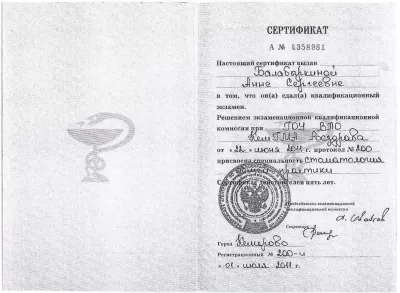 СЕРТИФИКАТ
А № 4358981
Настоящий сертификат выдан
Балабаркиной
Анне Сергеевне
в том, что он(а) сдал(а) квалификационный
экзамен.
Решением экзаменационной квалификационной
комиссии при ГОУ ВПО
КемГМА Росздрава
от «22» июня 2011 г. протокол № 200
присвоена специальность стоматология
практики
Сертификат действителен пять лет.
Председатель экзаменационной
квалификационной комиссии
Секретарь
Город Кемерово
Регистрационный № 200-и
«01» июля 2011 г.